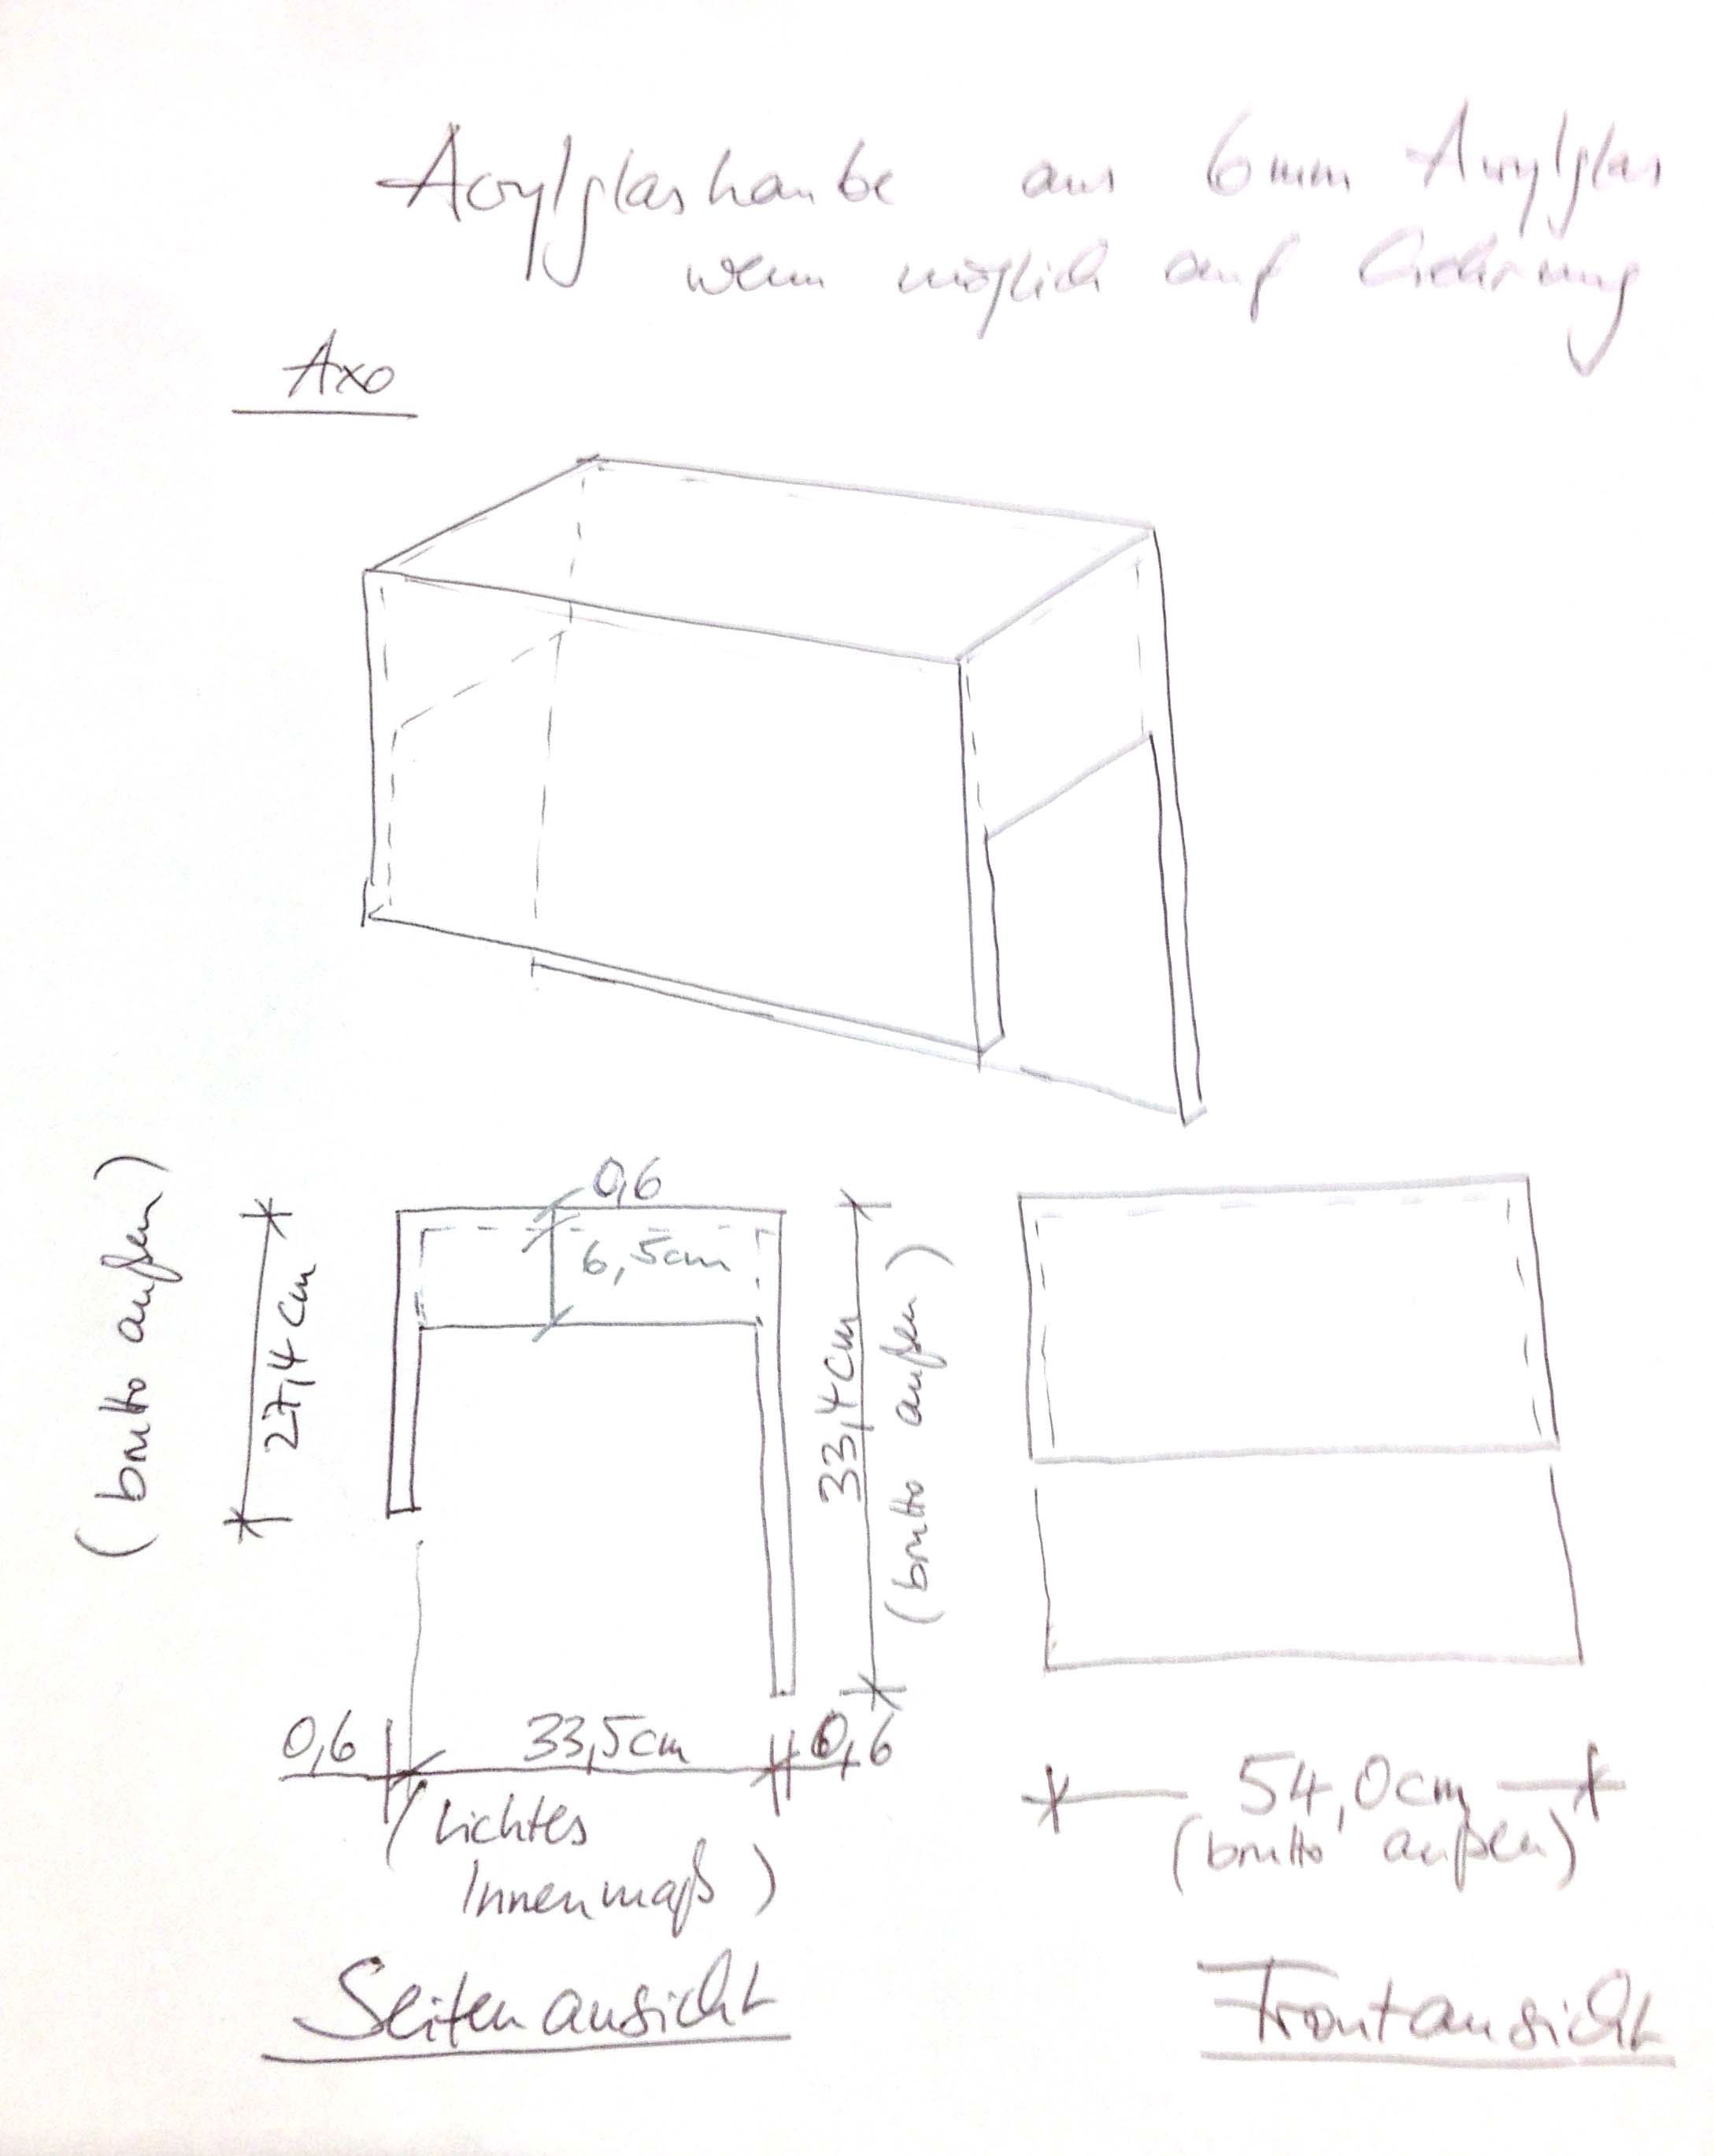 Acrylglashaube aus 6mm Acrylglas
wenn möglich auf Gehrung
Axo
0,6
6,5cm
27,4cm
(brutto außen)
33,4cm
(brutto außen)
0,6
33,5cm
0,6
(Lichtes
Innenmaß)
54,0cm
(brutto außen)
Seitenansicht
Frontansicht